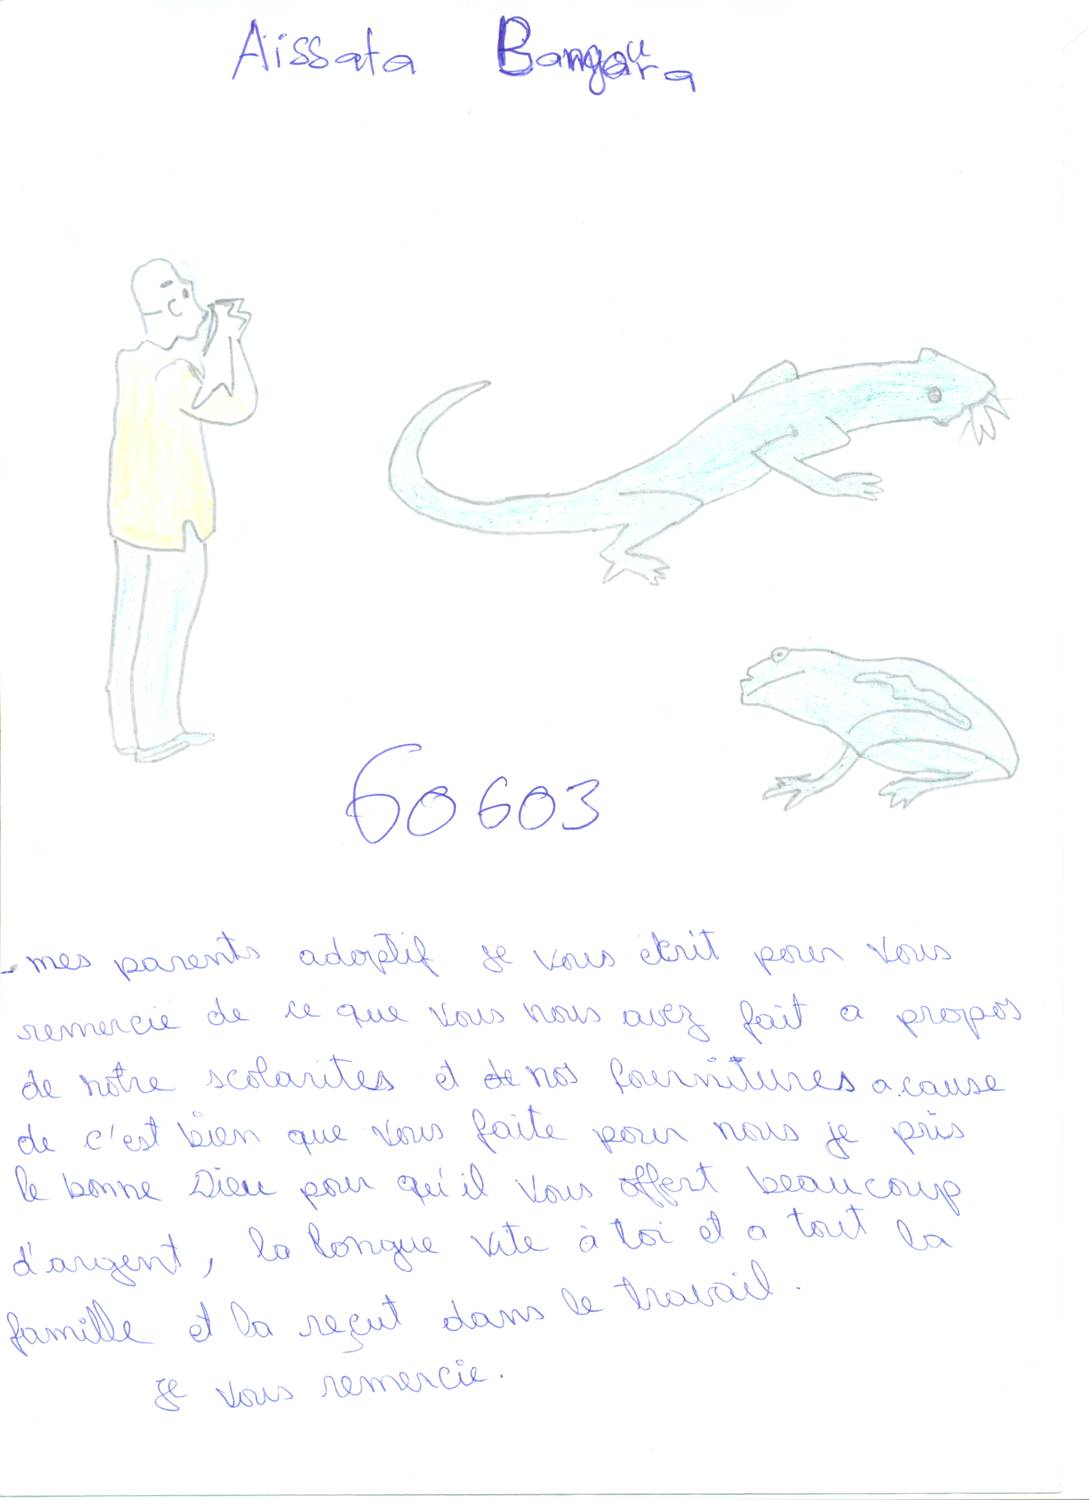 Aissata Bangoura
60603
- mes parents adoptif je vous écrit pour vous
remercie de ce que vous nous avez fait a propos
de notre scolarites et de nos fournitures a cause
de c'est bien que vous faite pour nous je pris
le bonne Dieu pour qu'il vous offert beaucoup
d'argent, la longue vite à toi et a tout la
famille et la reçut dans le travail.
je vous remercie.